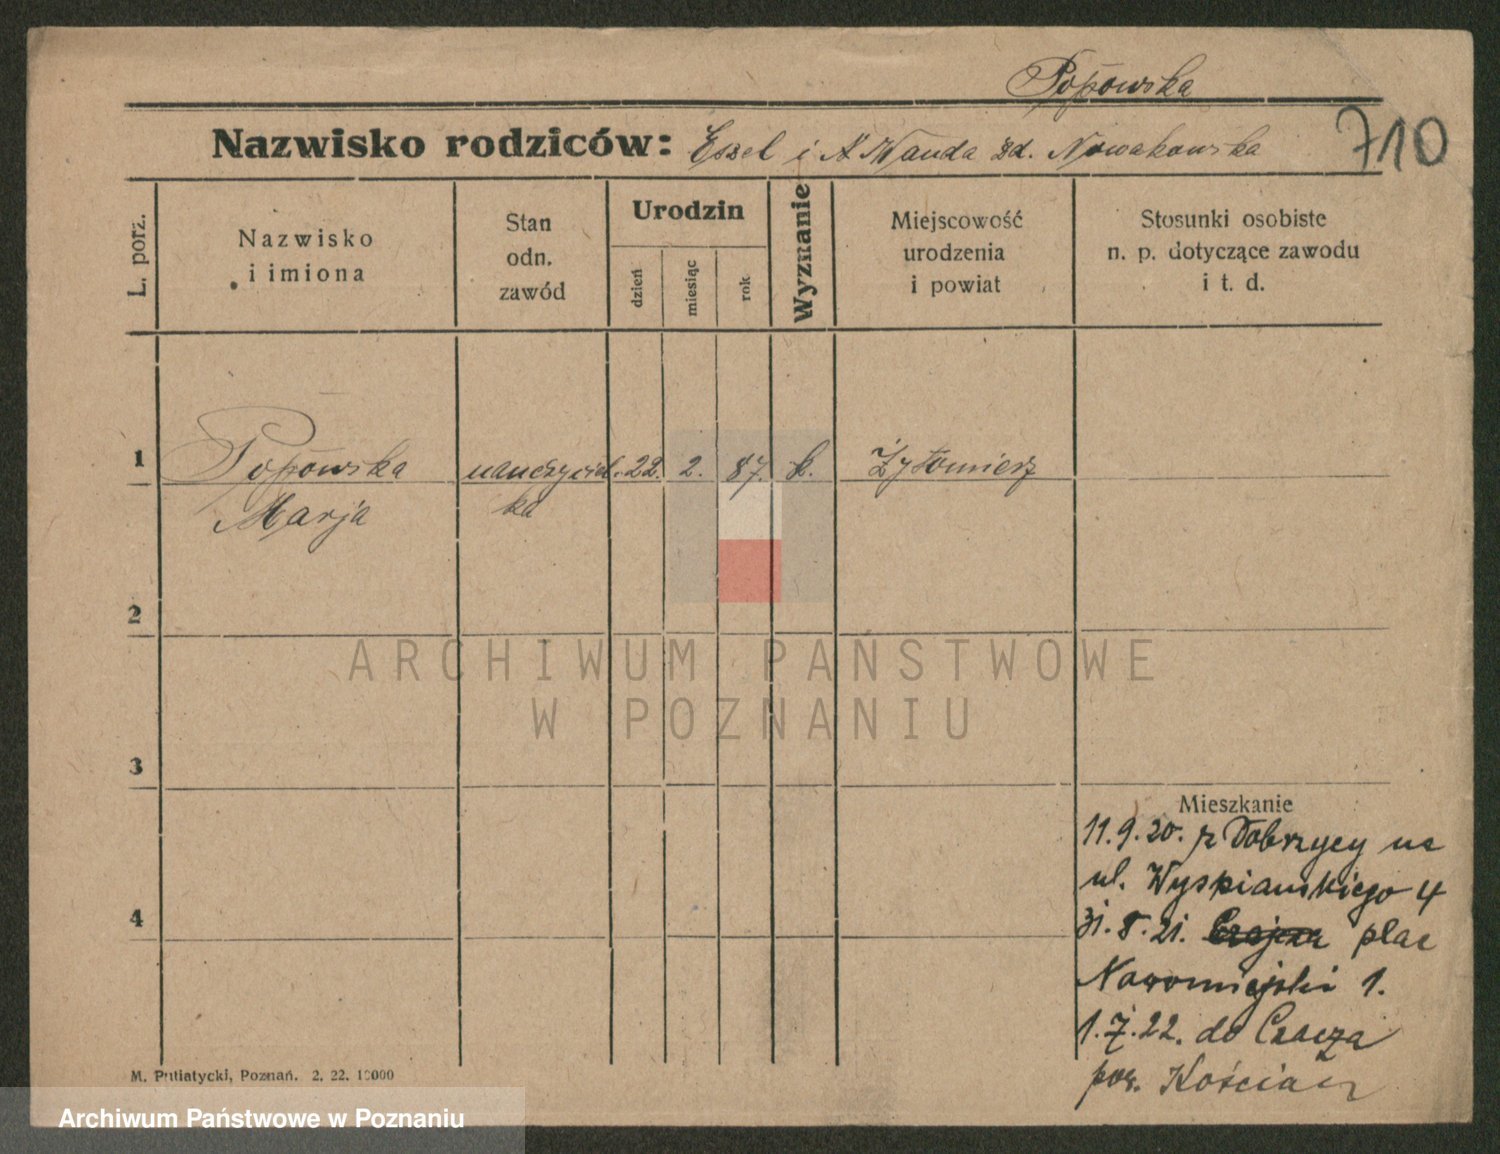 Popowska
710
Nazwisko rodziców: Eszel i Wanda zd. Nowakowska
L. porz.
Nazwisko
i imiona
Stan
odn.
zawód
Urodzin
dzień
miesiąc
rok
Wyznanie
Miejscowość
urodzenia
i powiat
Stosunki osobiste
n. p. dotyczące zawodu
i t. d.
1 Popowska nauczyciel- 22. 2. 87. k. Żytomierz
Marja ka
2
ARCHIWUM PAŃSTWOWE
W POZNANIU
3
Mieszkanie
11.9.20. z Dobrzycy na
ul. Wyspiańskiego 4
4
31.8.21. Czajcza plac
Nowomiejski 1.
1.7.22. do Czacza
pow. Kościan
M. Putiatycki, Poznań. 2. 22. 10000
Archiwum Państwowe w Poznaniu